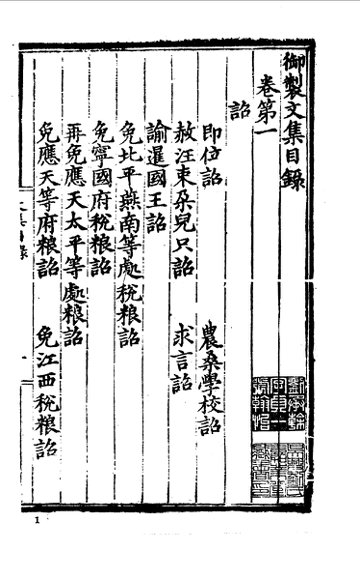 御製文集目録
卷第一
詔
即位詔 農桑學校詔
赦汪束朶兒只詔 求言詔
諭暹國王詔
免北平燕南等處稅粮詔
免寧國府稅粮詔
再免應天太平等處粮詔
免應天等府粮詔 免江西稅粮詔
1